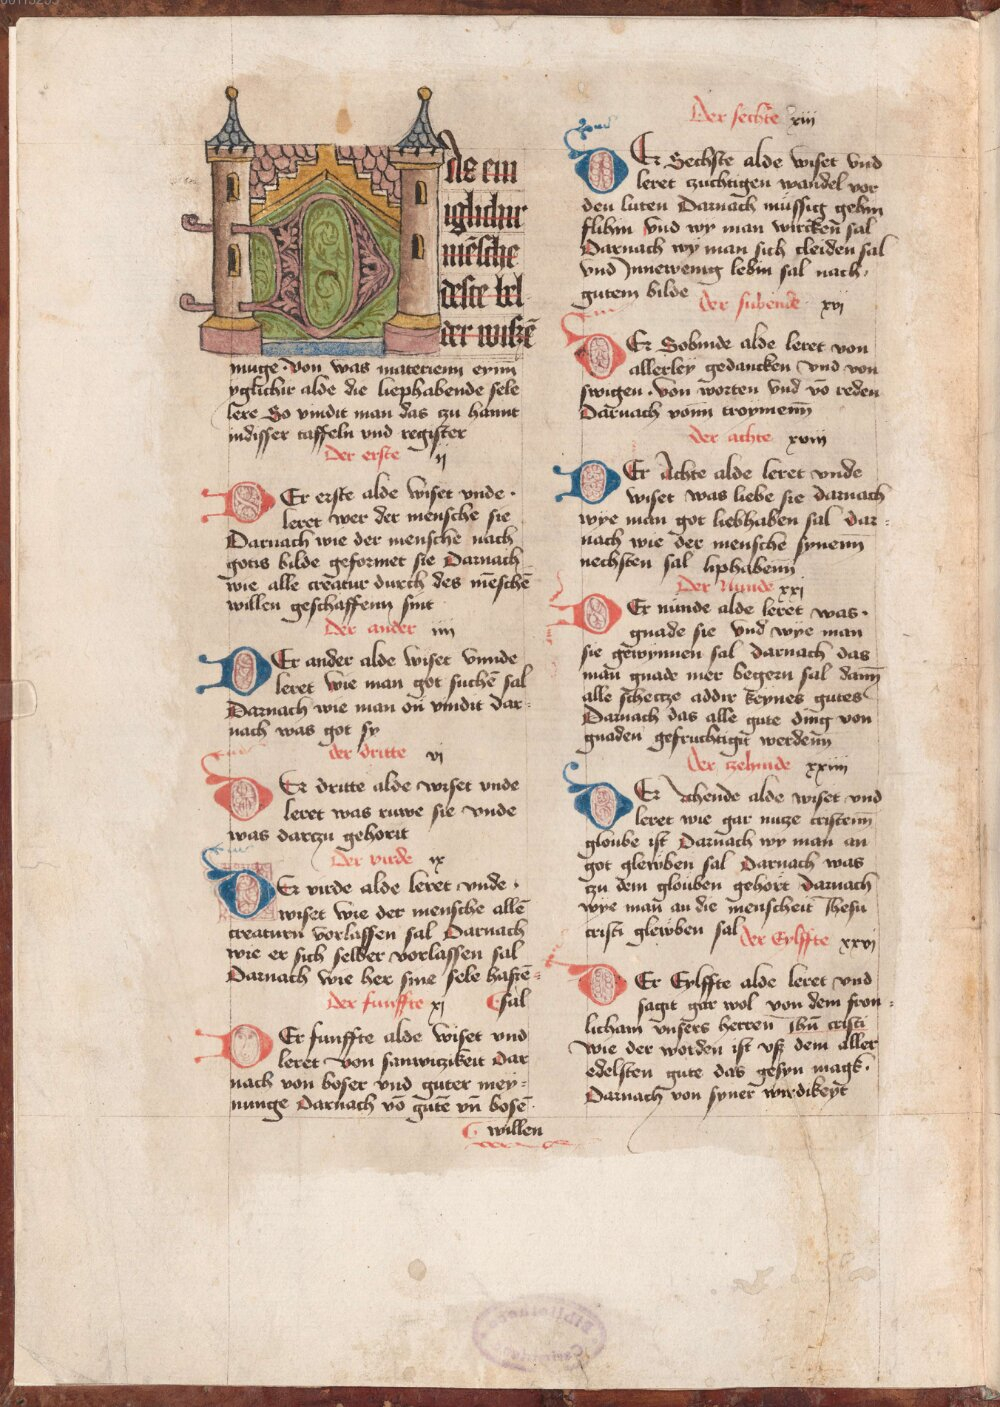 Das ein
iglichir
mēsche
deste bel
der wißē
muge von was materienn eynn
yglichir alde die liephabende sele
lere So vindit man das zu hannt
indisser taffeln vnd register
Der erste ij
Er erste alde wiset vnde
leret wer der mensche sie
Darnach wie der mensche nach
gotis bilde geformet sie Darnach
wie alle creatur durch des mēschē
willen geschaffenn sint
Der ander iiij
Er ander alde wiset vnnde
leret wie man got suchē sal
Darnach wie man on vindit dar-
nach was got sy
der dritte vj
Er dritte alde wiset vnde
leret was ruwe sie vnde
was dartzu gehorit
Der virde ix
Er virde alde leret vnde
wiset wie der mensche alle
creaturn vorlassen sal Darnach
wie er sich selber vorlassen sal
Darnach wie her sine sele hasē-
sal
Der funffte xj
Er funffte alde wiset vnd
leret von sanwizikeit dar
nach von boser vnd guter mey-
nunge Darnach vō gutē vn̄ bosē
willen
Der sechte xiij
Er Sechste alde wiset vnd
leret zuchtigen wandel vor
den luten Darnach mussig gehin
flihin vnd wy man wircken sal
Darnach wy man sich cleiden sal
vnd Innewenig lebin sal nach
gutem bilde
der subende xvj
Er Sobinde alde leret von
allerley gedancken vnd von
swigen von worten vnd vō reden
Darnach vonn troymenn
der achte xviij
Er Achte alde leret vnde
wiset was liebe sie darnach
wye man got liebhaben sal dar-
nach wie der mensche synenn
nechsten sal liphabenn
Der Nunde xxj
Er nunde alde leret was
gnade sie vnd wye man
sie gewynnen sal darnach das
man gnade mer begern sal dann
alle schetcze addir keynes gutes
Darnach das alle gute ding von
gnaden gefruchtigit werdenn
der zehinde xxiiij
Er zchende alde wiset vnd
leret wie gar nutze cristenn
gloube ist Darnach wy man an
got glewben sal Darnach was
zu dem glouben gehort darnach
wye man an die menscheit Jhesu
cristi glewben sal
der Eylffte xxvj
Er Eylffte alde leret vnd
sagit gar wol von dem fron-
licham vnsers herren ihū cristi
wie der worden ist vß dem aller
edelsten gute das gesyn magk
Darnach von syner wirdikeyt